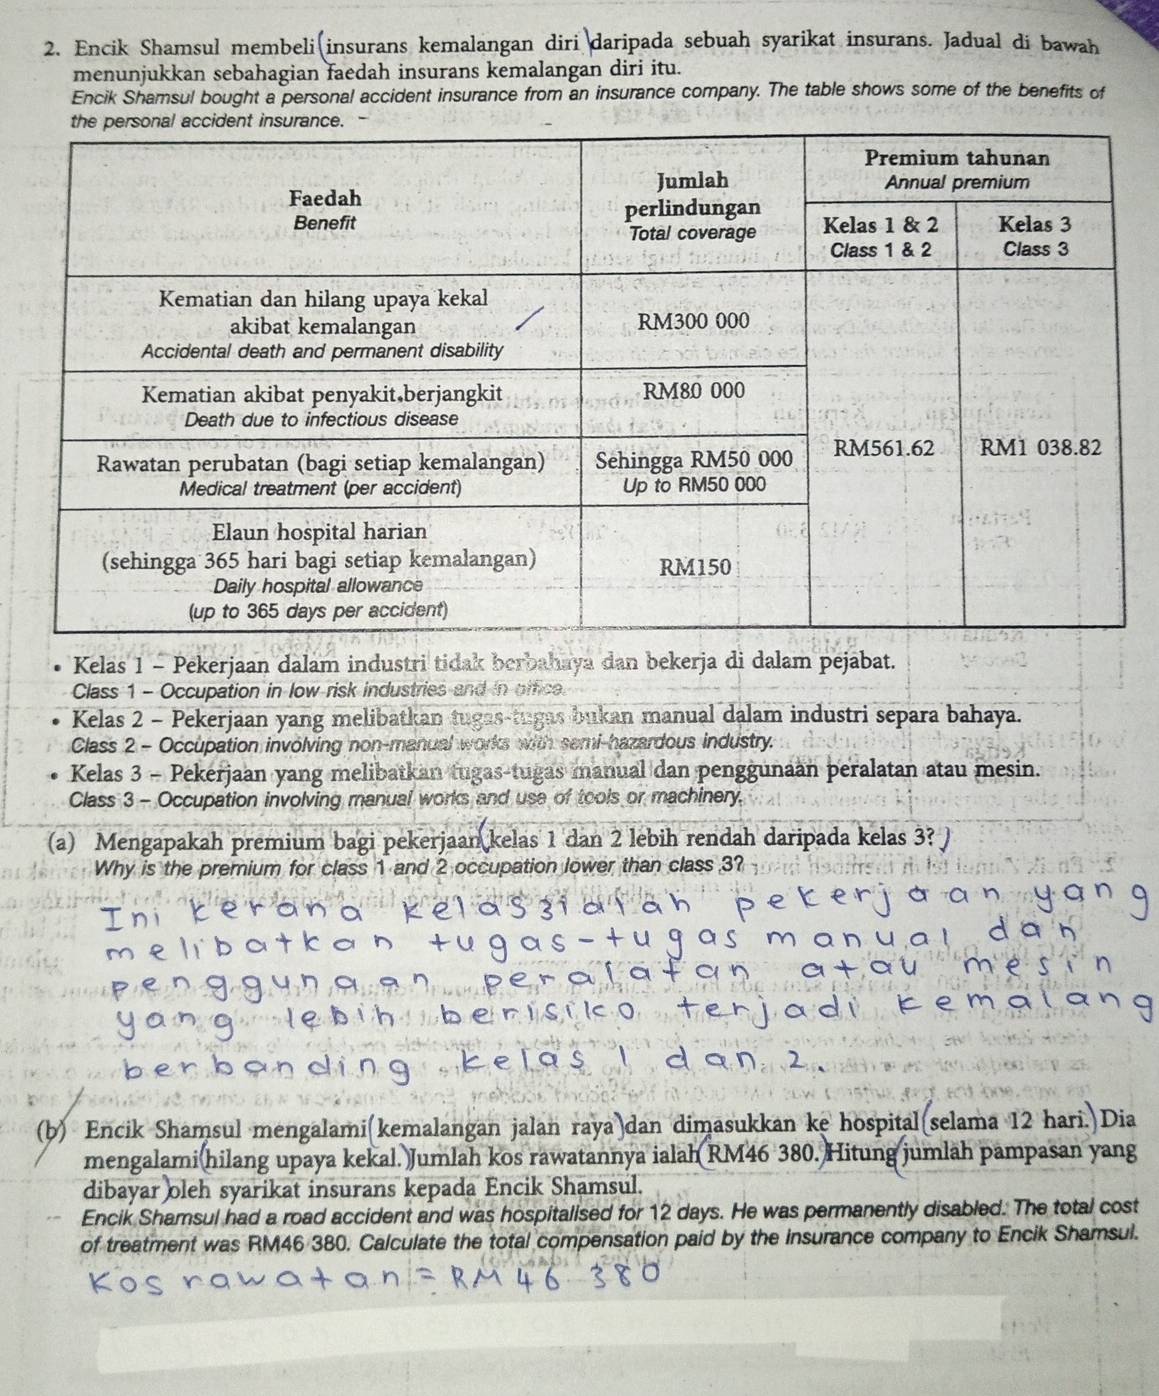 2. Encik Shamsul membeli (insurans kemalangan diri) daripada sebuah syarikat insurans. Jadual di bawah
menunjukkan sebahagian faedah insurans kemalangan diri itu.
Encik Shamsul bought a personal accident insurance from an insurance company. The table shows some of the benefits of
the personal accident insurance.
Faedah
Benefit
Jumlah
perlindungan
Total coverage
Premium tahunan
Annual premium
Kelas 1 & 2
Class 1 & 2
Kelas 3
Class 3
Kematian dan hilang upaya kekal
akibat kemalangan
Accidental death and permanent disability
RM300 000
Kematian akibat penyakit berjangkit
Death due to infectious disease
RM80 000
Rawatan perubatan (bagi setiap kemalangan)
Medical treatment (per accident)
Sehingga RM50 000
Up to RM50 000
Elaun hospital harian
(sehingga 365 hari bagi setiap kemalangan)
Daily hospital allowance
(up to 365 days per accident)
RM150
RM561.62
RM1 038.82
• Kelas 1 – Pekerjaan dalam industri tidak berbahaya dan bekerja di dalam pejabat.
Class 1 – Occupation in low risk industries and in office.
• Kelas 2 – Pekerjaan yang melibatkan tugas-tugas bukan manual dalam industri separa bahaya.
Class 2 – Occupation involving non-manual works with semi-hazardous industry.
• Kelas 3 – Pekerjaan yang melibatkan tugas-tugas manual dan penggunaan peralatan atau mesin.
Class 3 – Occupation involving manual works and use of tools or machinery.
(a) Mengapakah premium bagi pekerjaan (kelas 1 dan 2 lebih rendah daripada kelas 3?)
Why is the premium for class 1 and 2 occupation lower than class 3?
Ini kerana kelas 3 ialah pekerjaan yang
melibatkan tugas-tugas manual dan
penggunaan peralatan atau mesin
yang lebih berisiko terjadi kemalang
berbanding kelas 1 dan 2.
(b) Encik Shamsul mengalami (kemalangan jalan raya) dan dimasukkan ke hospital (selama 12 hari.) Dia
mengalami (hilang upaya kekal.) Jumlah kos rawatannya ialah (RM46 380.) Hitung (jumlah pampasan yang
dibayar) oleh syarikat insurans kepada Encik Shamsul.
Encik Shamsul had a road accident and was hospitalised for 12 days. He was permanently disabled. The total cost
of treatment was RM46 380. Calculate the total compensation paid by the insurance company to Encik Shamsul.
Kos rawatan = RM 46 380